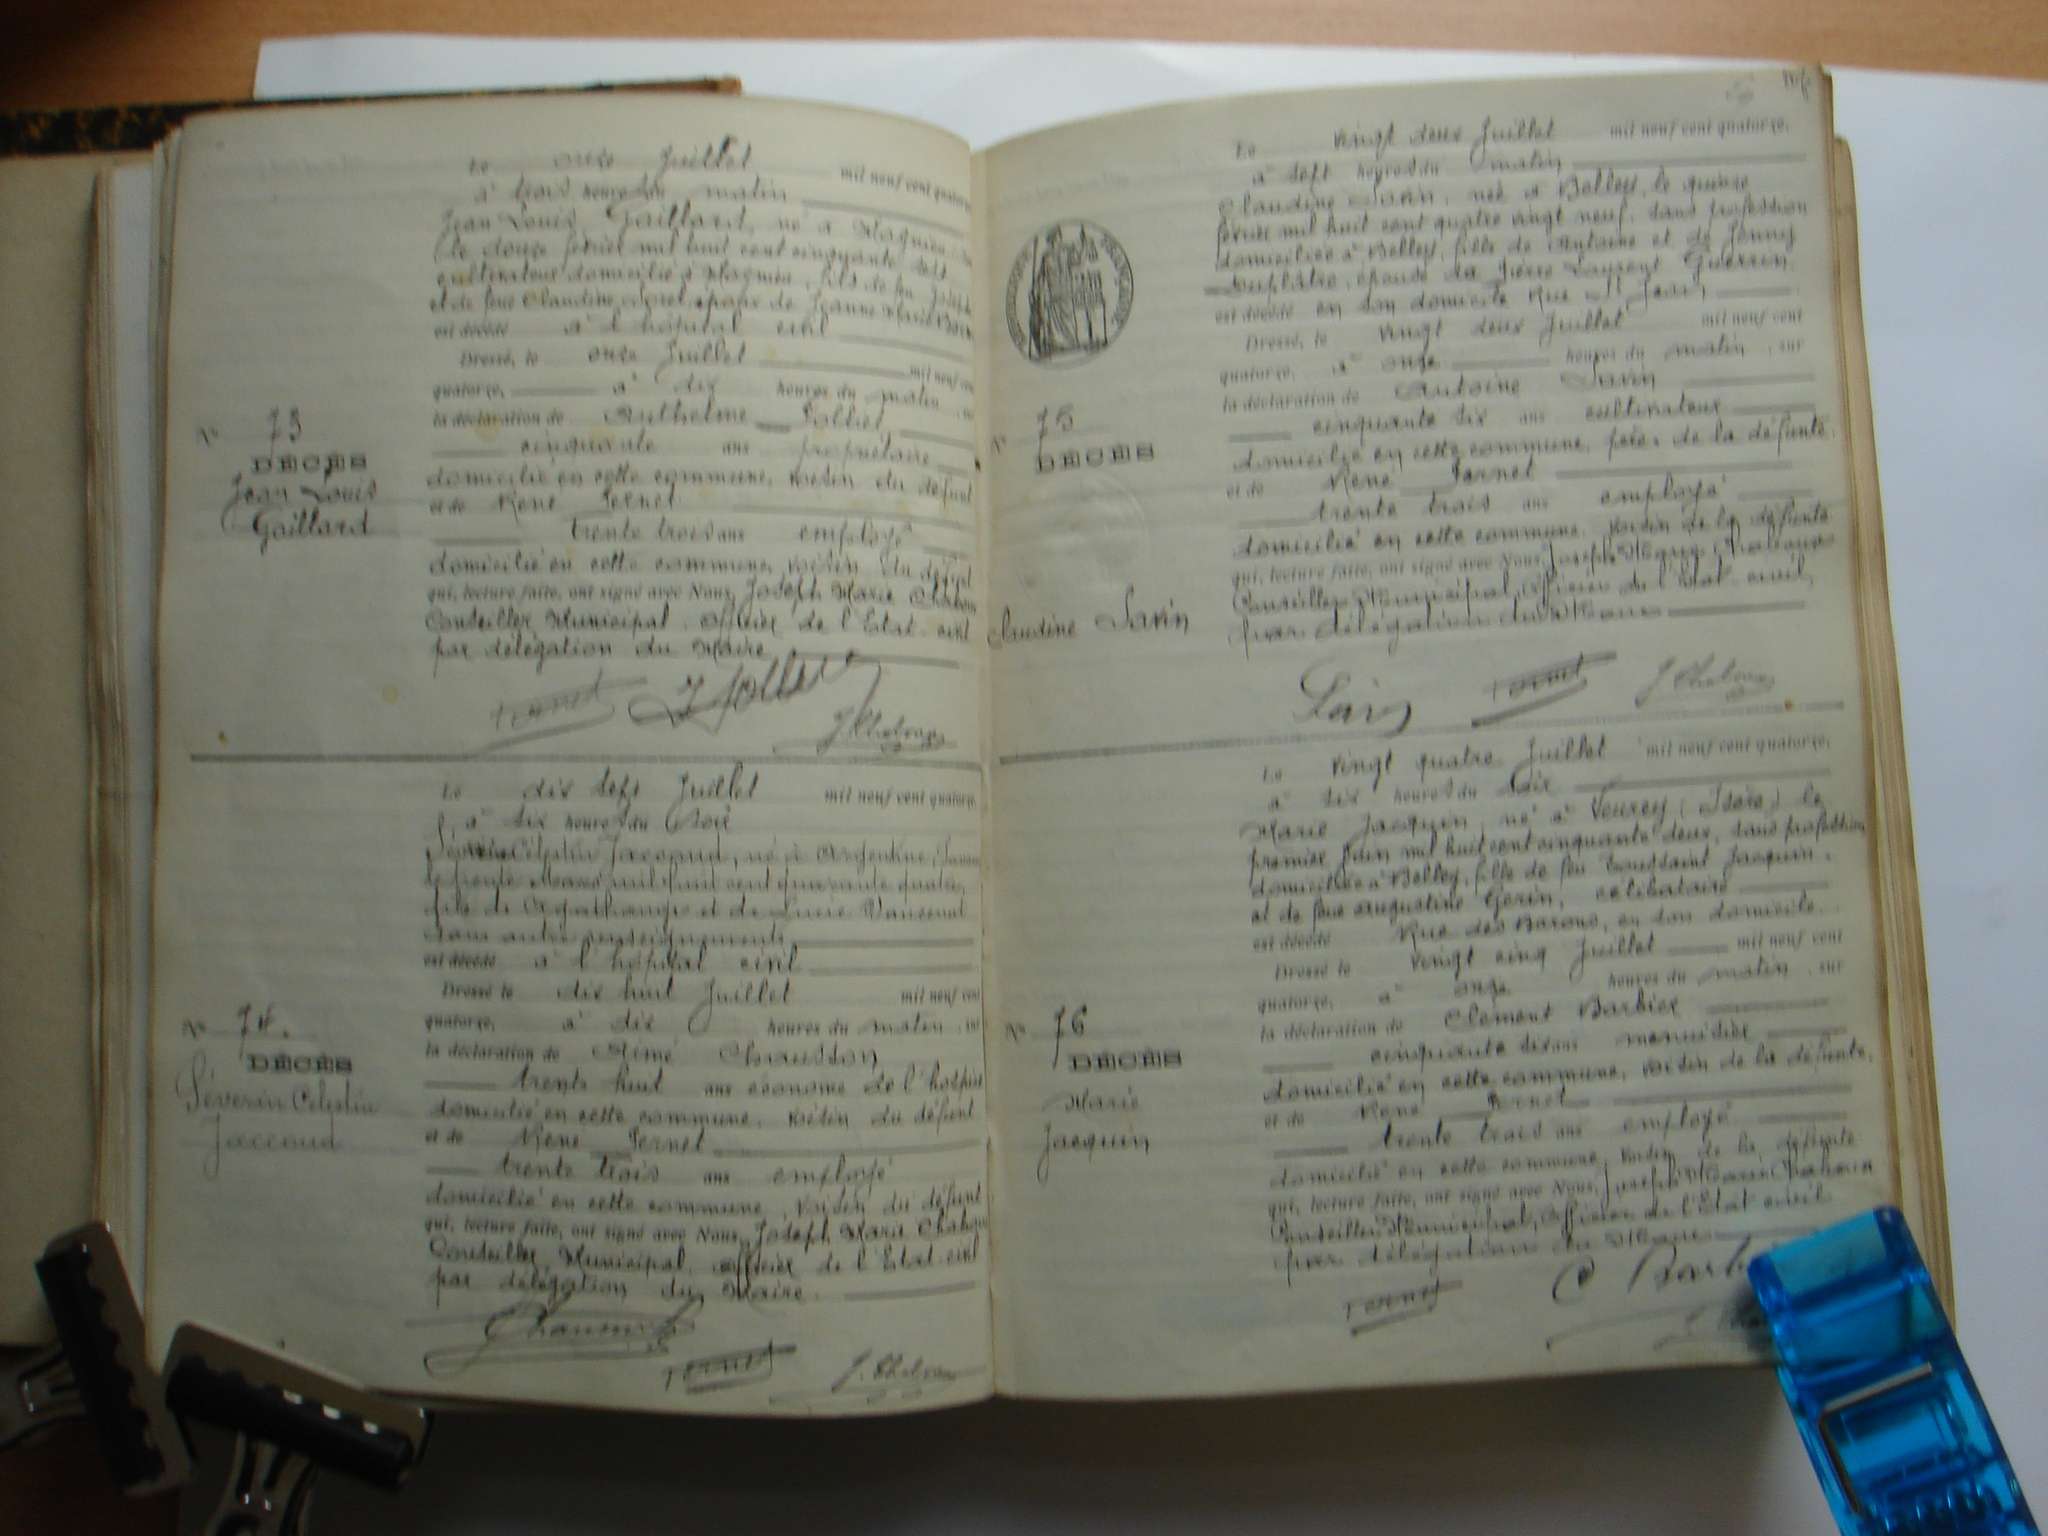 Le onze Juillet mil neuf cent quatorze
à trois heures du matin
Jean Louis Gaillard, né à Magnieu
le douze février mil huit cent cinquante sept
cultivateur domicilié à Magnieu, fils de feu Joseph
et de feue Claudine époux de Jeanne Marie
est décédé à l'hôpital civil
Dressé, le onze Juillet mil neuf cent
quatorze, à dix heures du matin, sur
la déclaration de Anthelme Jolliet
cinquante ans propriétaire
domicilié en cette commune, voisin du défunt
et de René Fernet
trente trois ans employé
domicilié en cette commune, voisin du défunt
qui, lecture faite, ont signé avec Nous, Joseph Marie
Conseiller Municipal, Officier de l'Etat-civil
par délégation du Maire
N° 73
DÉCÈS
Jean Louis
Gaillard
Le dix sept Juillet mil neuf cent quatorze,
à six heures du Soir
Séverin Célestin Jaccoud, né à Argentine,
le trente Mars mil huit cent quarante quatre,
fils de et de Lucie
sans autre renseignements
est décédé à l'hôpital civil
Dressé le dix huit Juillet mil neuf cent
quatorze, à dix heures du matin, sur
la déclaration de Aimé Chausson
trente huit ans économe de l'hospice
domicilié en cette commune, voisin du défunt
et de René Fernet
trente trois ans employé
domicilié en cette commune, voisin du défunt
qui, lecture faite, ont signé avec Nous, Joseph Marie
Conseiller Municipal, officier de l'Etat-civil
par délégation du Maire.
N° 74.
DÉCÈS
Séverin Célestin
Jaccoud
Le vingt deux Juillet mil neuf cent quatorze,
à sept heures du matin
Claudine Savin, née à Belley, le quinze
février mil huit cent quatre vingt neuf, sans profession
domiciliée à Belley, fille de Antoine et de Jenny
Duplâtre, épouse de Pierre Laurent Guerrin
est décédé en son domicile Rue St Jean
Dressé, le vingt deux Juillet mil neuf cent
quatorze, à onze heures du matin, sur
la déclaration de Antoine Savin
cinquante six ans cultivateur
domicilié en cette commune, père de la défunte,
et de René Fernet
trente trois ans employé
domicilié en cette commune, voisin de la défunte
qui, lecture faite, ont signé avec Nous, Joseph Marie
Conseiller Municipal, Officier de l'Etat-civil,
par délégation du Maire
N° 75
DÉCÈS
Claudine Savin
Le vingt quatre Juillet mil neuf cent quatorze,
à six heures du Soir
Marie Jacquin, né à Veurey, (Isère) le
premier Juin mil huit cent cinquante deux, sans profession
domiciliée à Belley, fille de feu Toussaint Jacquin,
et de feue Augustine Gerin, célibataire
est décédé Rue des Barons, en son domicile
Dressé le vingt cinq Juillet mil neuf cent
quatorze, à onze heures du matin, sur
la déclaration de Clément Barbier
cinquante six ans menuisier
domicilié en cette commune, voisin de la défunte,
et de René Fernet
trente trois ans employé
domicilié en cette commune, voisin de la défunte
qui, lecture faite, ont signé avec Nous, Joseph Marie
Conseiller Municipal, Officier de l'Etat civil
par délégation du Maire
N° 76
DÉCÈS
Marie
Jacquin